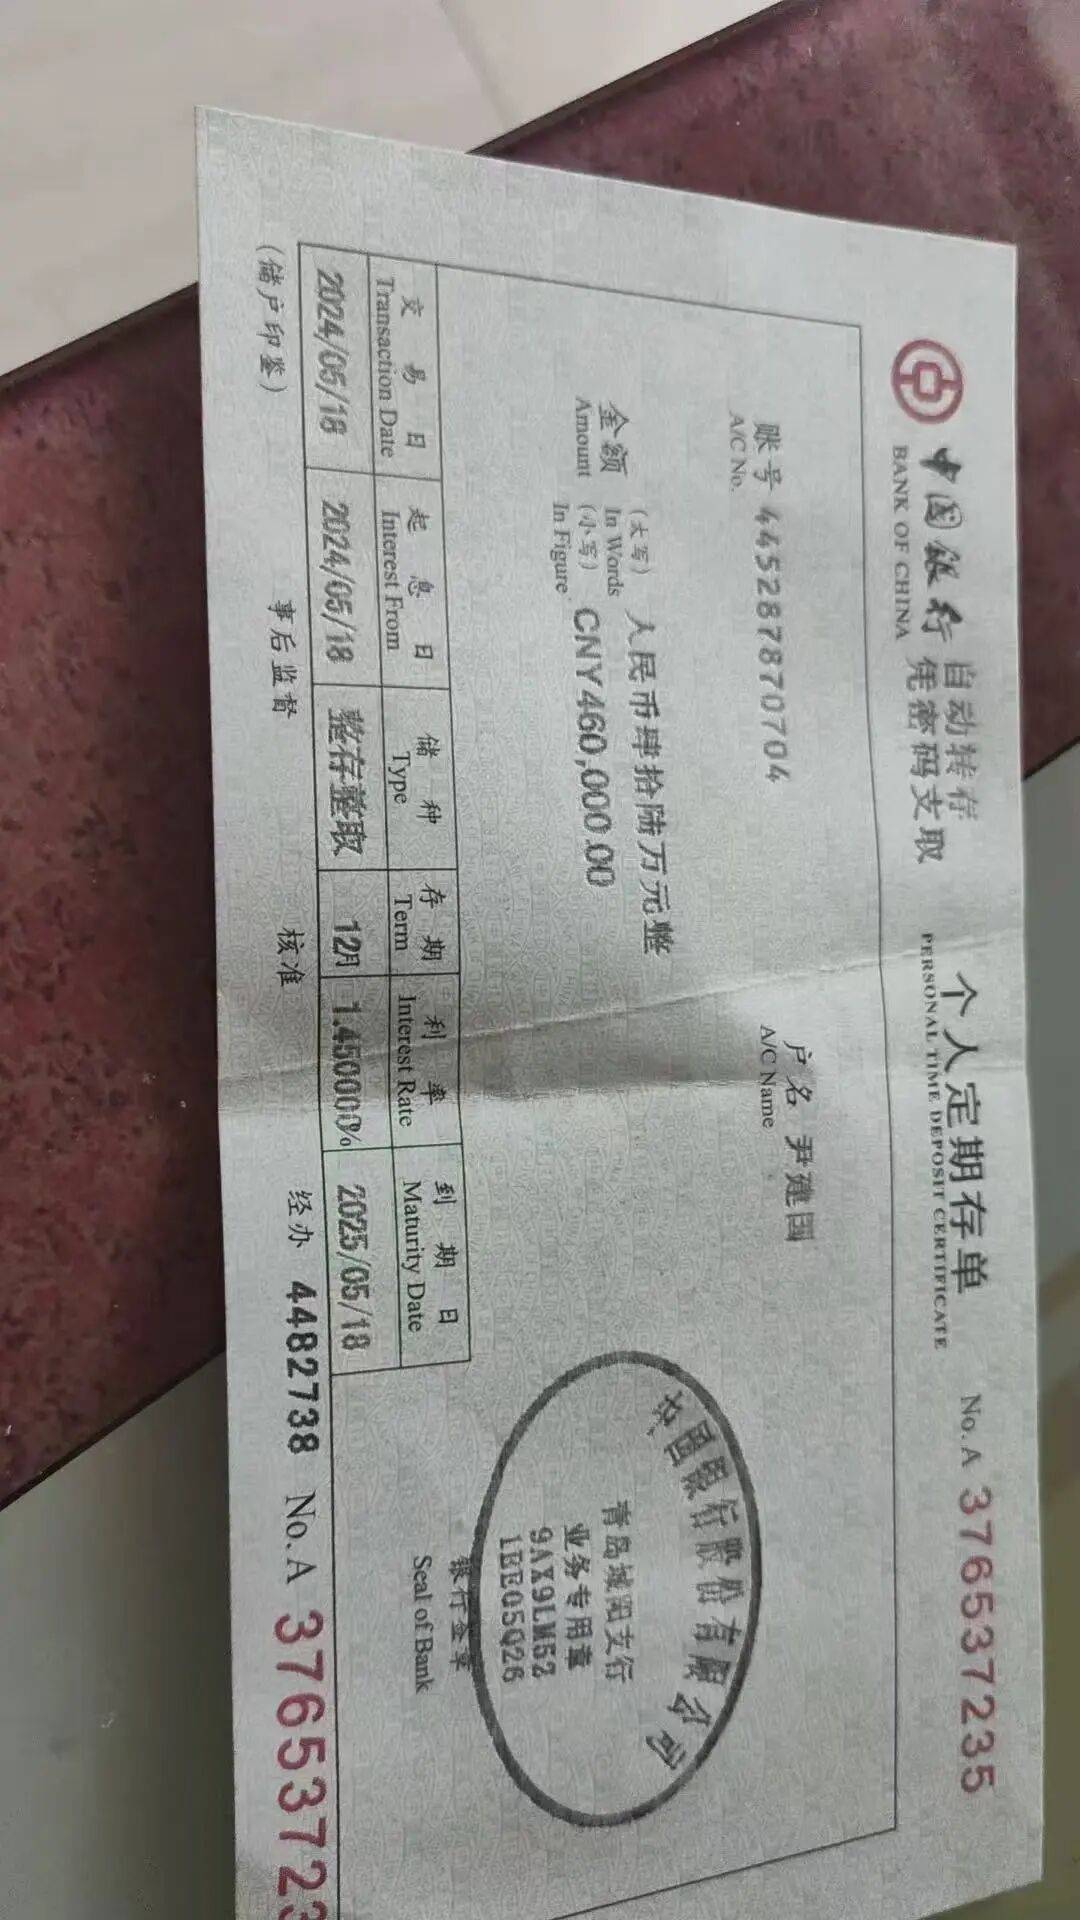 中国银行
BANK OF CHINA
自动转存
凭密码支取
个人定期存单
PERSONAL TIME DEPOSIT CERTIFICATE
No. A 376537235
账号 445287870704
A/C No.
户名 尹建国
A/C Name
金额
Amount
(大写) 人民币肆拾陆万元整
In Words
(小写) CNY460,000.00
In Figure
交易日 起息日 储种 存期 利率 到期日
Transaction Date Interest From Type Term Interest Rate Maturity Date
2024/05/18 2024/05/18 整存整取 12月 1.450000% 2025/05/18
中国银行股份有限公司
青岛城阳支行
业务专用章
9AX9LM52
1BE05Q26
银行签章
Seal of Bank
(储户印鉴) 事后监督 核准 经办 4482738 No. A 37653723